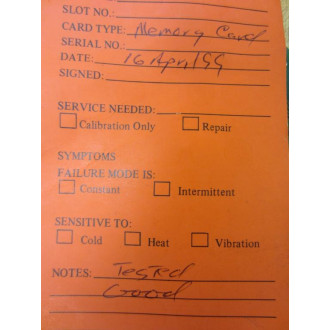 SLOT NO.
CARD TYPE: Memory Card
SERIAL NO.
DATE: 16 April 99
SIGNED:
SERVICE NEEDED:
Calibration Only Repair
SYMPTOMS
FAILURE MODE IS:
Constant Intermittent
SENSITIVE TO:
Cold Heat Vibration
NOTES: Tested
Good